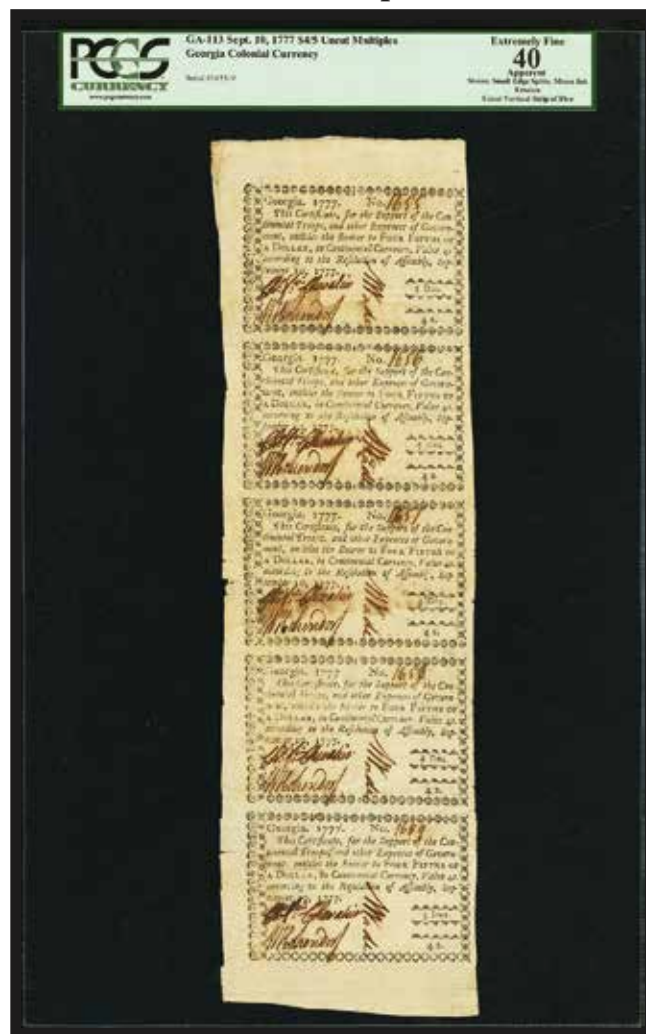 PCGS
CURRENCY
www.pcgscurrency.com
GA-113 Sept. 10, 1777 $4/5 Uncut Multiples
Georgia Colonial Currency
Extremely Fine
40
Apparent
Uncut Vertical Strip of Five
Georgia. 1777. No. 1655
This Certificate, for the Support of the Con-
tinental Troops, and other Expences of Govern-
ment, entitles the Bearer to FOUR FIFTHS OF
A DOLLAR, in Continental Currency, Value 4s.
according to the Resolution of Assembly, Sep-
tember 10, 1777.
4 s.
Georgia. 1777. No. 1656
This Certificate, for the Support of the Con-
tinental Troops, and other Expences of Govern-
ment, entitles the Bearer to FOUR FIFTHS OF
A DOLLAR, in Continental Currency, Value 4s.
according to the Resolution of Assembly, Sep-
tember 10, 1777.
4 s.
Georgia. 1777. No. 1657
This Certificate, for the Support of the Con-
tinental Troops, and other Expences of Govern-
ment, entitles the Bearer to FOUR FIFTHS OF
A DOLLAR, in Continental Currency, Value 4s.
according to the Resolution of Assembly, Sep-
tember 10, 1777.
4 s.
Georgia. 1777. No. 1658
This Certificate, for the Support of the Con-
tinental Troops, and other Expences of Govern-
ment, entitles the Bearer to FOUR FIFTHS OF
A DOLLAR, in Continental Currency, Value 4s.
according to the Resolution of Assembly, Sep-
tember 10, 1777.
4 s.
Georgia. 1777. No. 1659
This Certificate, for the Support of the Con-
tinental Troops, and other Expences of Govern-
ment, entitles the Bearer to FOUR FIFTHS OF
A DOLLAR, in Continental Currency, Value 4s.
according to the Resolution of Assembly, Sep-
tember 10, 1777.
4 s.